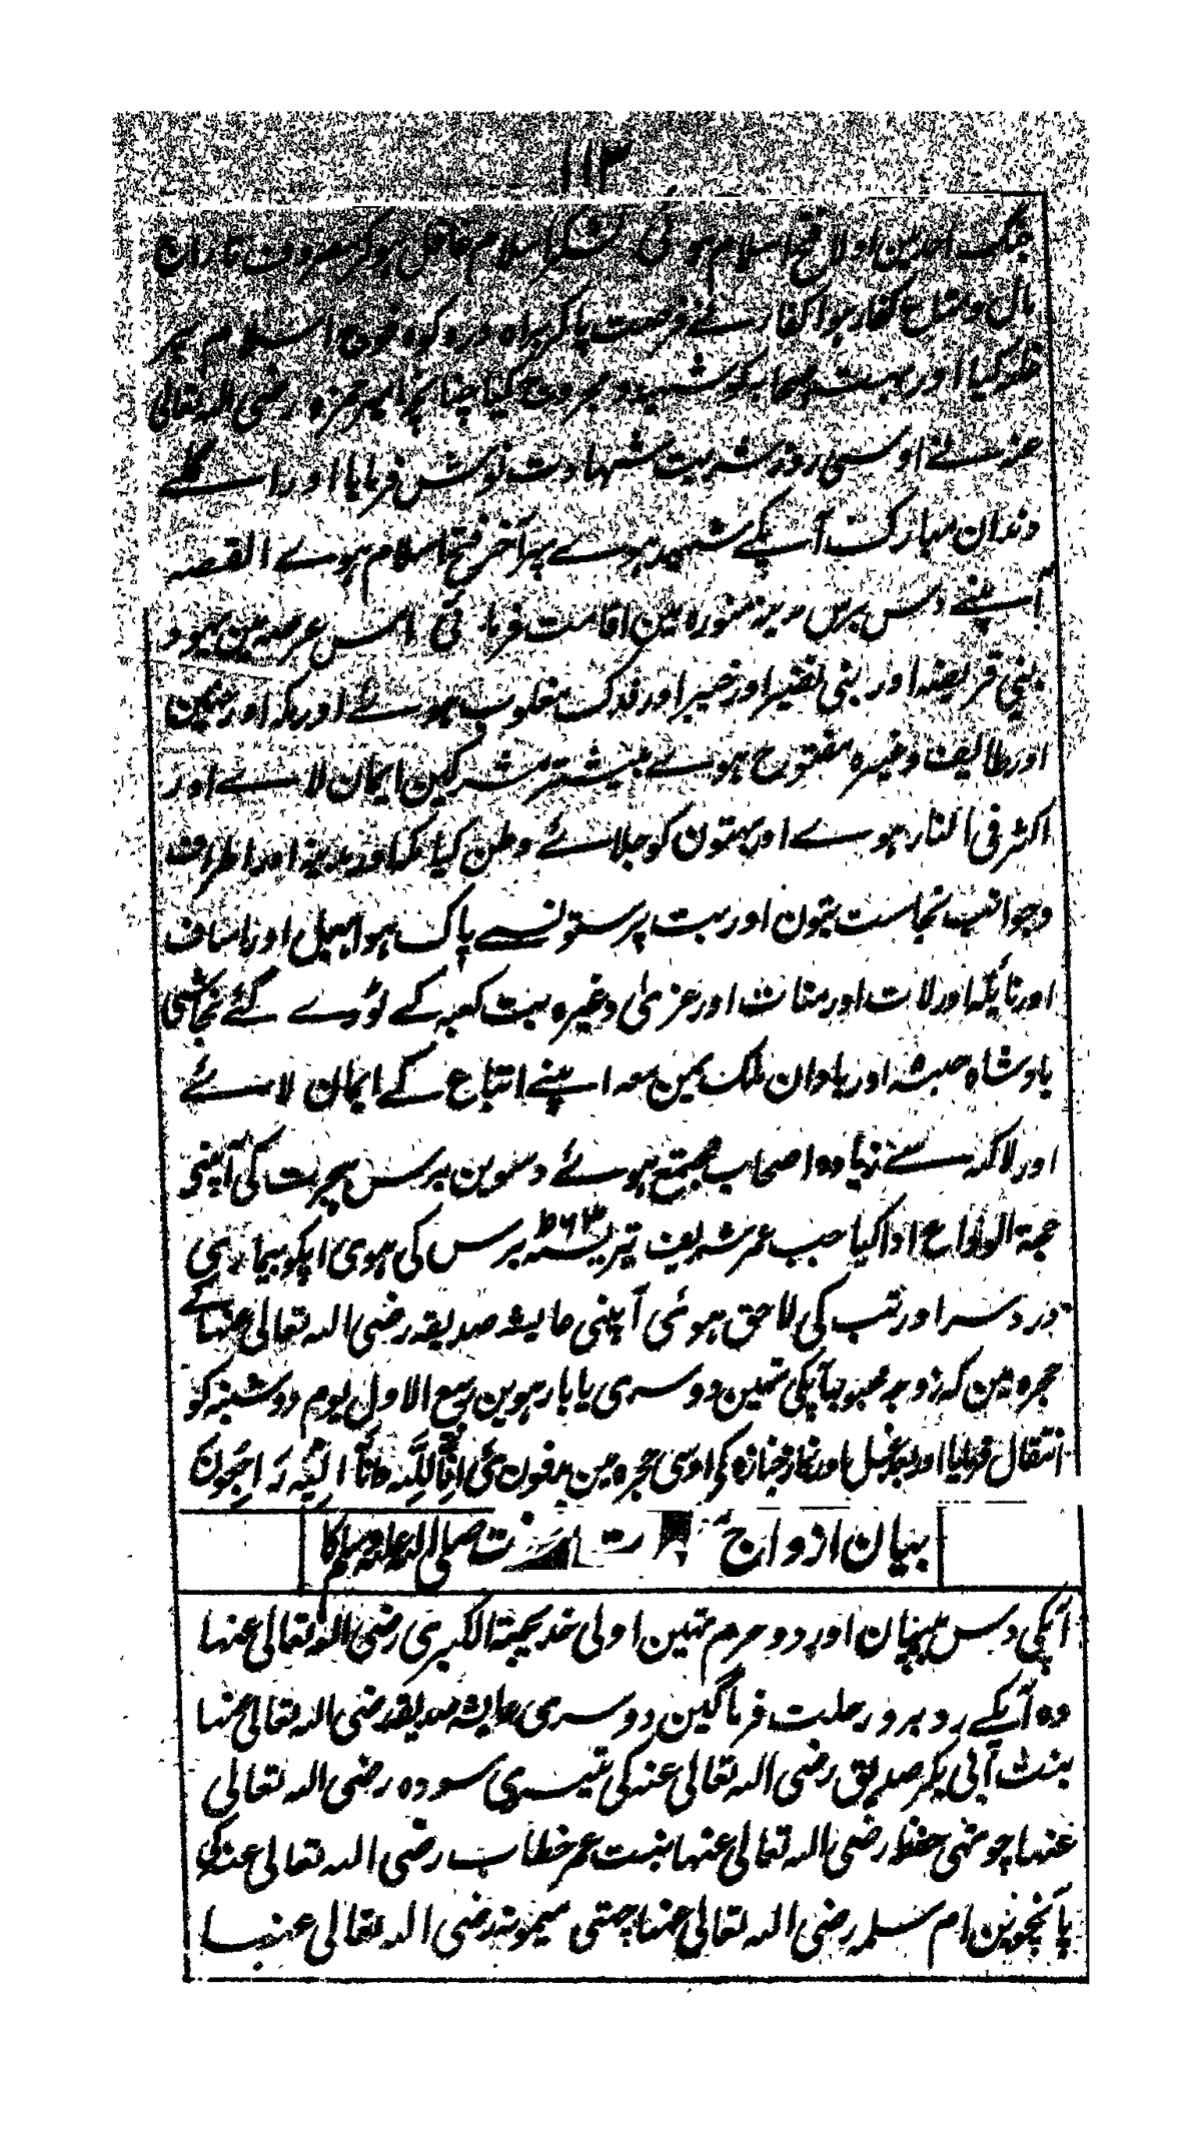 ۱۱۳
جنگ احد مین اولا فتح اسلام ہوئی لشکر اسلام غافل ہوکر مصروف تاران
مال و متاع کفار ہوا کفار نے فرصت پاکر براہ درہ کوہ فوج اسلام پر
حملہ کیا اور بہت صحابہ کو شہید و مجروح کیا چنانچہ امیر حمزہ رضی اللہ تعالی
عنہ نے اوسی روز شربت شہادت نوش فرمایا اور اگلے
دندان مبارک آپکے شہید ہوے پہر آخر فتح اسلام ہوے القصہ
آپنے دس برس مدینہ منورہ مین اقامت فرمائی اس عرصہ مین یہود
بنی قریضہ اور بنی نضیر اور خیبر اور فدک مغلوب ہوئے اور مکہ اور حنین
اور طایف وغیرہ مفتوح ہوے بیشتر مشرکین ایمان لاے اور
اکثر فی النار ہوے اور بہتون کو جلاے وطن کیا مکہ اور مدینہ اور اطراف
وجوانب نجاست بتون اور بت پرستونسے پاک ہوا ہبل اور اساف
اور نایلہ اور لات اور منات اور عزی وغیرہ بت کعبہ کے توڑے گئے نجاشی
بادشاہ حبشہ اور باذان ملک یمن معہ اپنے اتباع کے ایمان لائے
اور لاکہہ سے زیادہ اصحاب مجتمع ہوئے دسوین برس ہجرت کی آپنی
حجة الوداع ادا کیا جب عمر شریف تریسٹہ ۶۳ برس کی ہوئی اپکو بیماری
درد سر اور تب کی لاحق ہوئی آپنی عایشہ صدیقہ رضی اللہ تعالی عنہا کے
حجرہ مین کہ زوجہ محبوبہ آپکی تہین دوسری یا بارہوین ربیع الاول یوم دوشنبہ کو
انتقال فرمایا اور بعد غسل اور نماز جنازہ کی اوسی حجرہ مین مدفون ہی اِنَّا لِلّٰہِ وَاِنَّا اِلَیْہِ رَاجِعُوْنَ
بیان ازواج صلی اللہ علیہ وسلم کا
آپکی دس بیبیان اور دو حرم تہین اولی خدیجة الکبری رضی اللہ تعالی عنہا
وہ آپکے روبرو رحلت فرما گئین دوسری عایشہ صدیقہ رضی اللہ تعالی عنہا
بنت ابی بکر صدیق رضی اللہ تعالی عنہ کی تیسری سودہ رضی اللہ تعالی
عنہا چوتہی حفظ رضی اللہ تعالی عنہا بنت عمر خطاب رضی اللہ تعالی عنہ کی
پانچوین ام سلمہ رضی اللہ تعالی عنہا چہتی میمونہ رضی اللہ تعالی عنہا